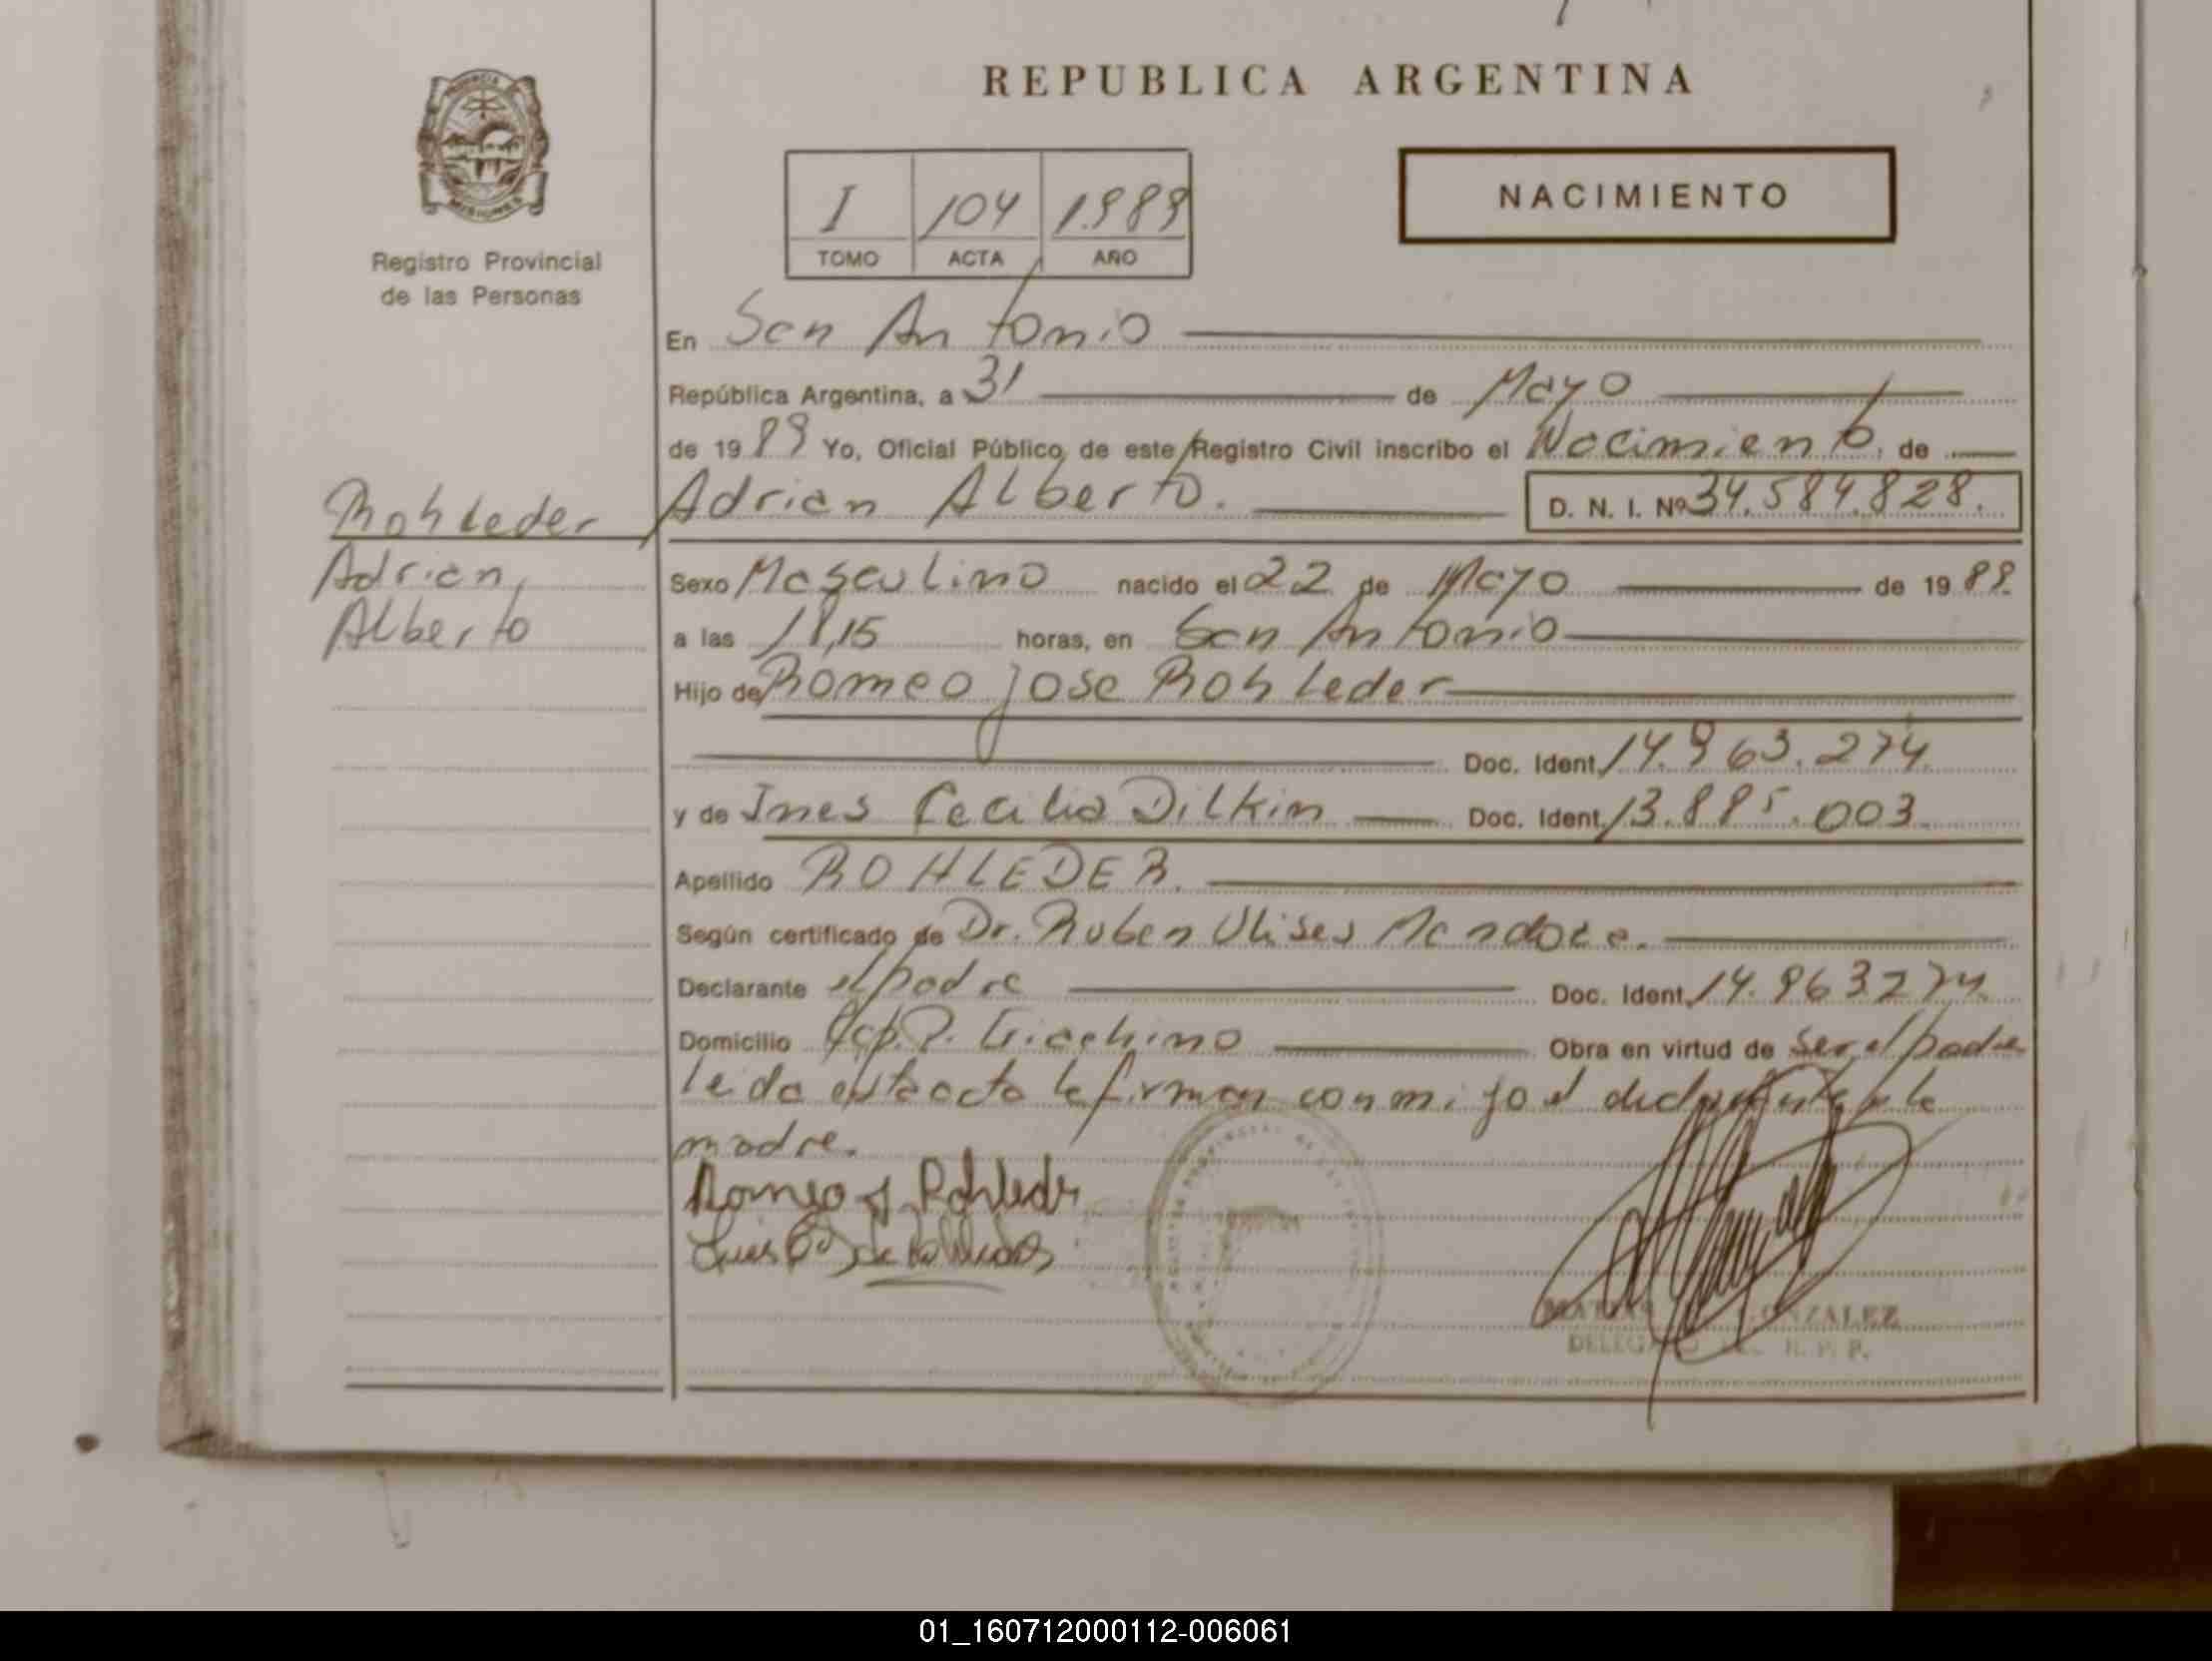 REPUBLICA ARGENTINA
PROVINCIA
MISIONES
Registro Provincial
de las Personas
I 104 1.989
TOMO ACTA AÑO
NACIMIENTO
En San Antonio
República Argentina, a 31 de Mayo
de 1989 Yo, Oficial Público de este Registro Civil inscribo el Nacimiento, de
Rohleder Adrian Alberto. D. N. I. Nº 34.584.828.
Adrian,
Alberto
Sexo Masculino nacido el 22 de Mayo de 1989.
a las 18,15 horas, en San Antonio
Hijo de Romeo Jose Rohleder
Doc. Ident. 14.963.274.
y de Ines Cecilia Dilkin Doc. Ident. 13.885.003.
Apellido ROHLEDER.
Según certificado de Dr. Ruben Ulises Mendoza.
Declarante el padre Doc. Ident. 14.963.274.
Domicilio P. Giachino Obra en virtud de ser el padre
leida esta acta la firman conmigo el declarante y la
madre.
Romeo J. Rohleder
GONZALEZ
DELEGADO R. P. P.
01_160712000112-006061